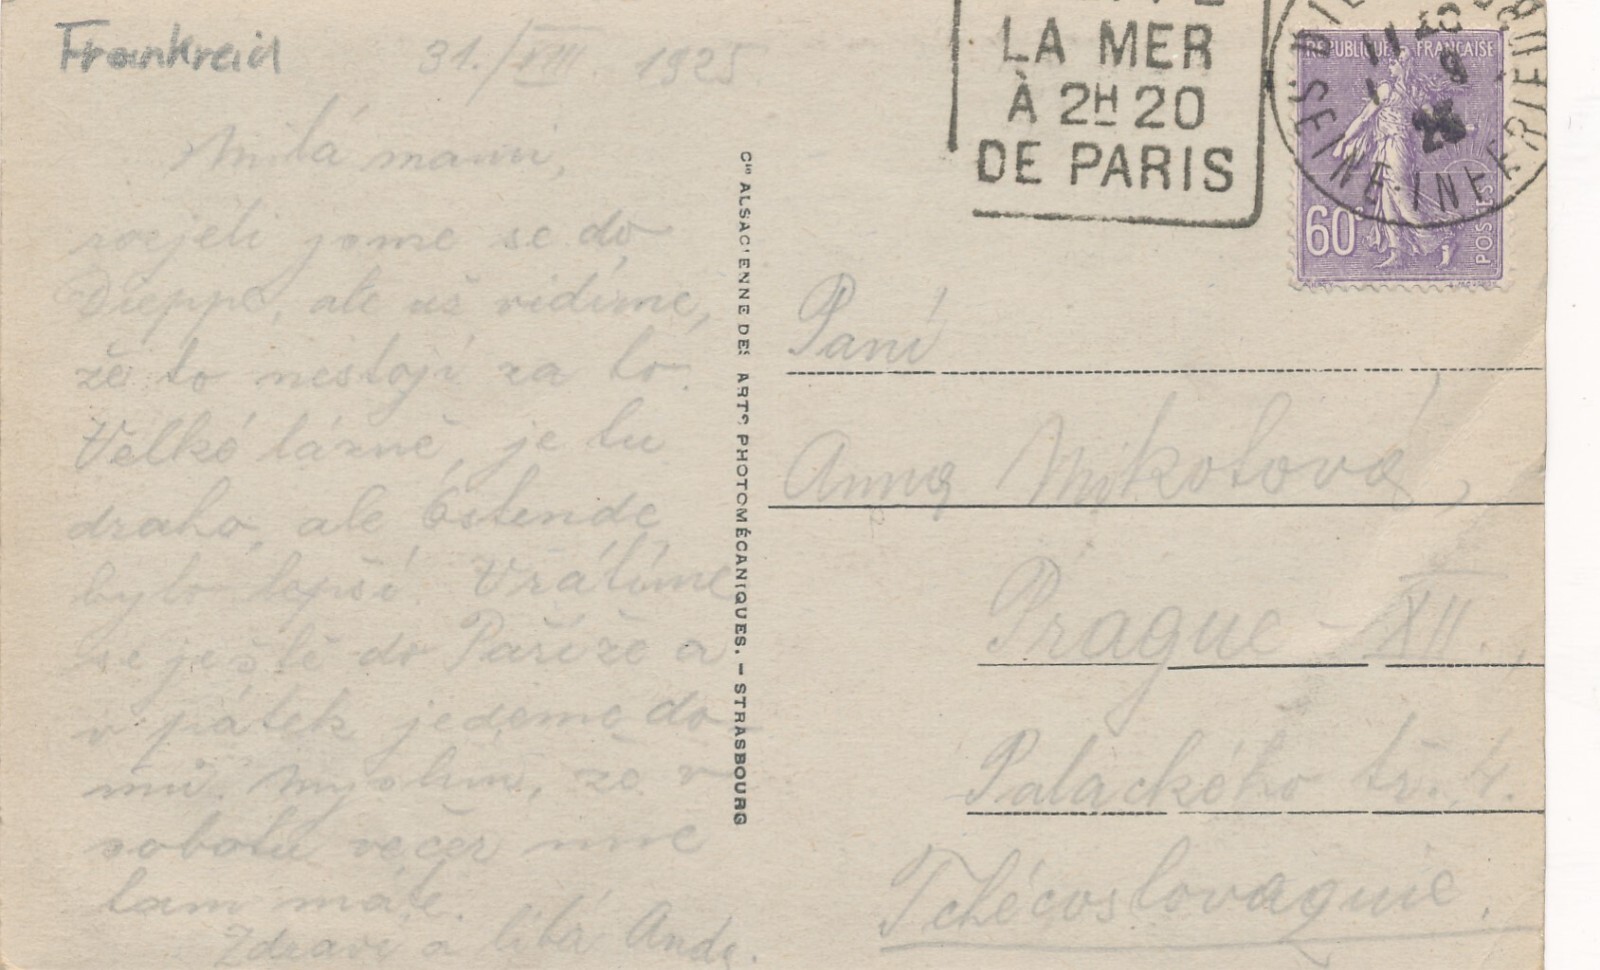 Frankreich
31./VIII. 1925
Milá mami,
rozjeli jsme se do
Dieppe, ale už vidíme,
že to nestojí za to.
Velké lázně, je tu
draho, ale Ostende
bylo lepší. Vrátíme
se ještě do Paříže a
v pátek jedeme do
Myslím, že v
sobotu večer mne
tam máte.
Zdraví a líbá Anda.
Cie ALSACIENNE DES ARTS PHOTOMÉCANIQUES. – STRASBOURG
LA MER
À 2H 20
DE PARIS
SEINE-INFÉRIEURE
RÉPUBLIQUE FRANÇAISE
60c
POSTES
Paní
Anna Mikotová,
Prague – XII.,
Palackého tř. 4.
Tchécoslovaquie.